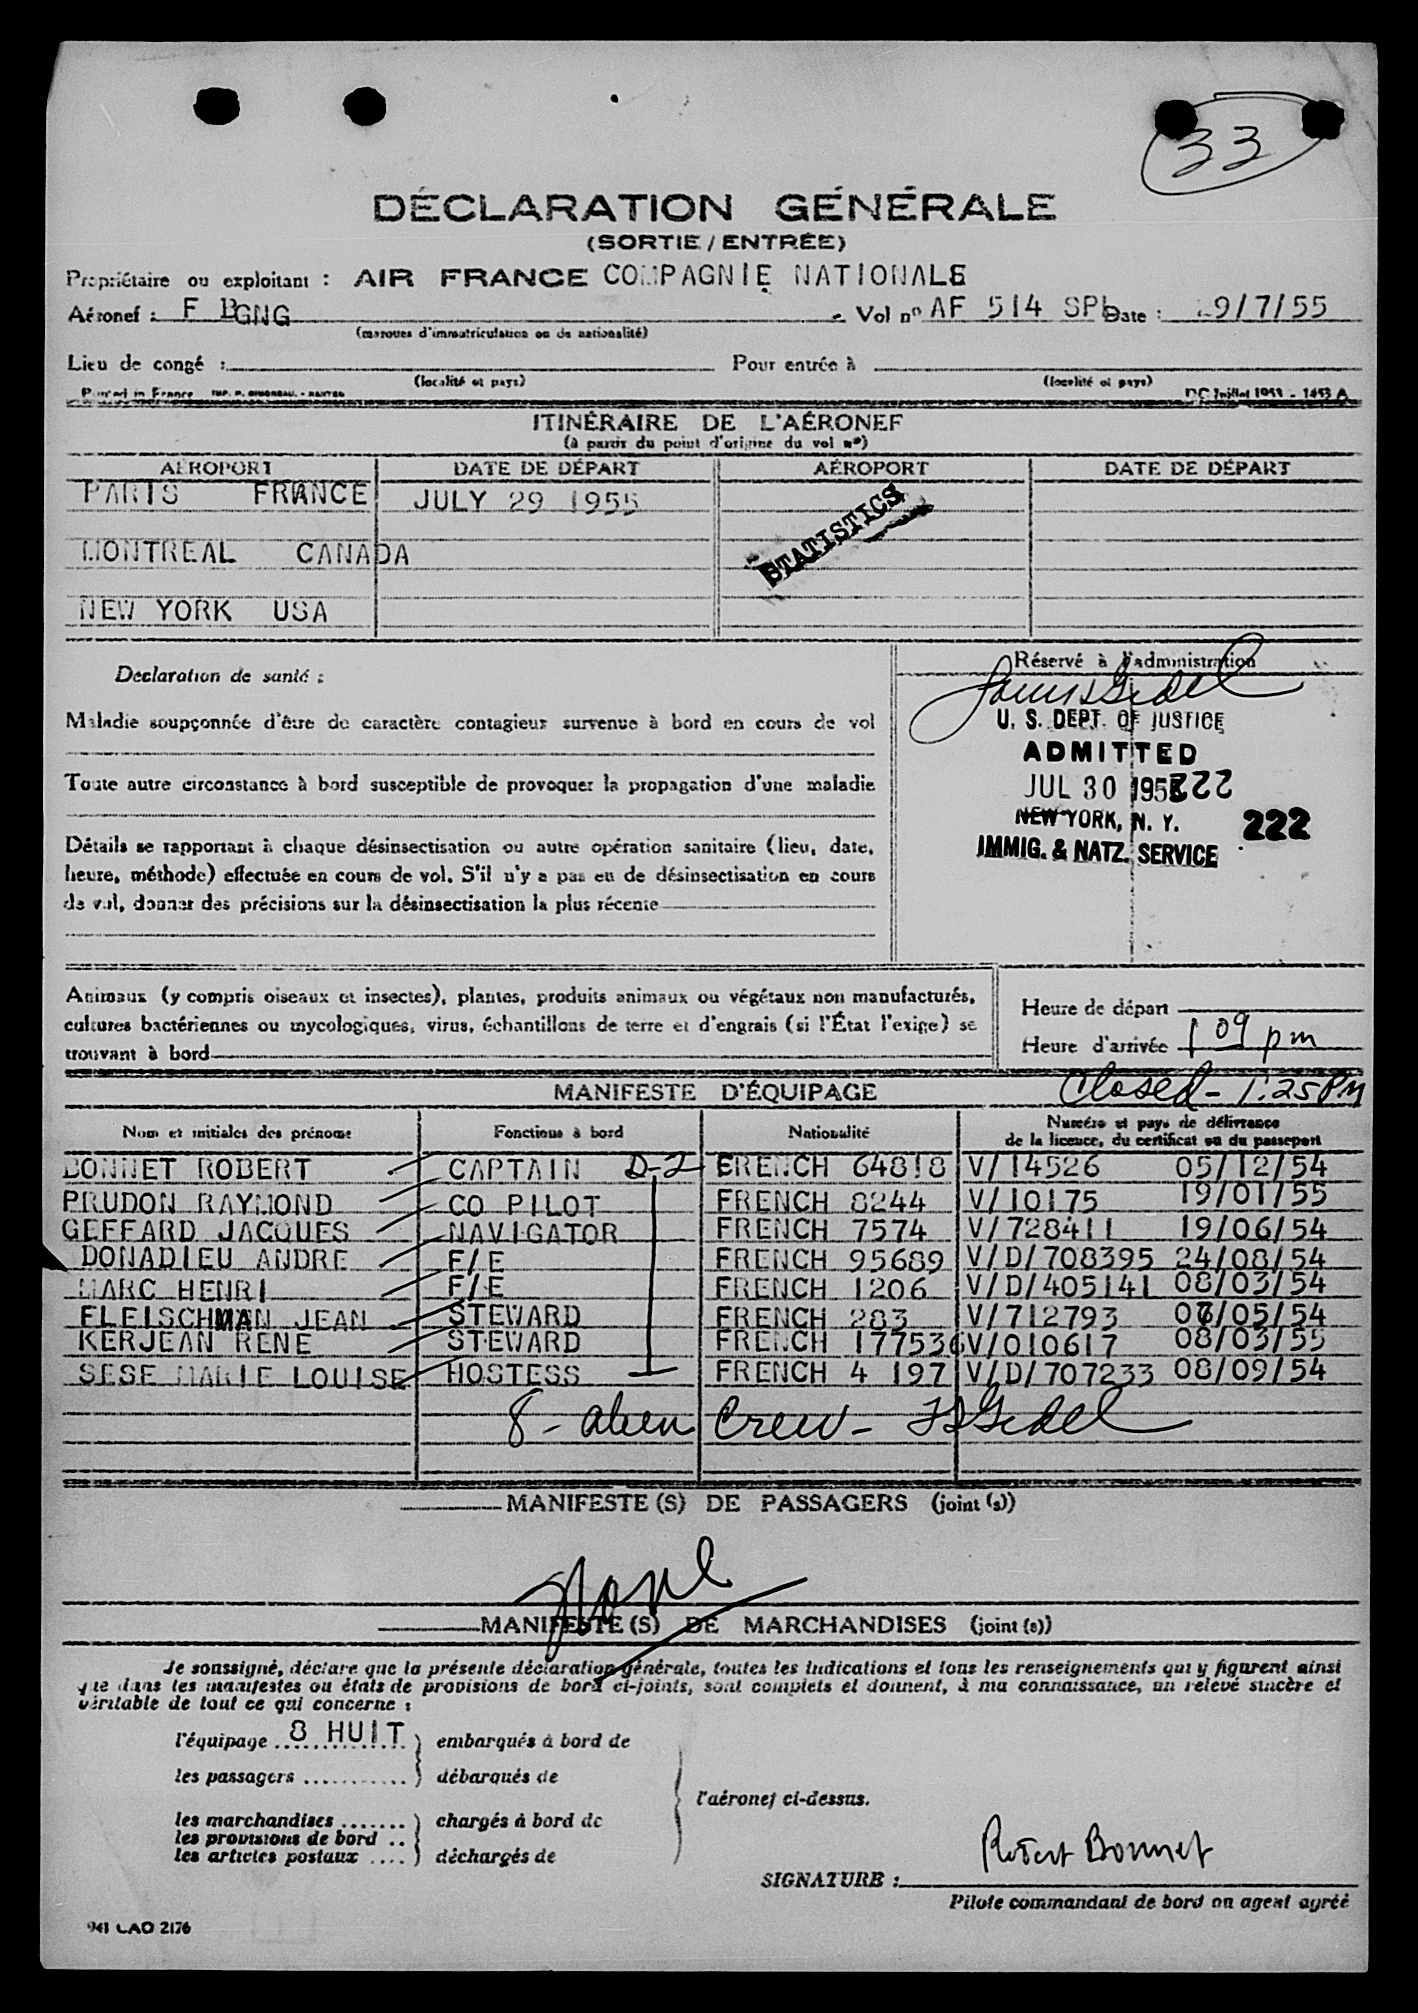 33
DÉCLARATION GÉNÉRALE
(SORTIE / ENTRÉE)
Propriétaire ou exploitant : AIR FRANCE COMPAGNIE NATIONALE
Aéronef : F BGNG Vol nº AF 514 SPL Date : 29/7/55
(marques d'immatriculation ou de nationalité)
Lieu de congé : Pour entrée à
(localité et pays) (localité et pays)
Printed in France DC Juillet 1953 - 1453 A
ITINÉRAIRE DE L'AÉRONEF
(à partir du point d'origine du vol nº)
AÉROPORT DATE DE DÉPART AÉROPORT DATE DE DÉPART
PARIS FRANCE JULY 29 1955
STATISTICS
MONTREAL CANADA
NEW YORK USA
Declaration de santé :
Réservé à l'administration
Maladie soupçonnée d'être de caractère contagieux survenue à bord en cours de vol
U. S. DEPT. OF JUSTICE
ADMITTED
Toute autre circonstance à bord susceptible de provoquer la propagation d'une maladie
JUL 30 1955 222
NEW YORK, N. Y. 222
IMMIG. & NATZ. SERVICE
Détails se rapportant à chaque désinsectisation ou autre opération sanitaire (lieu, date,
heure, méthode) effectuée en cours de vol. S'il n'y a pas eu de désinsectisation en cours
de vol, donner des précisions sur la désinsectisation la plus récente
Animaux (y compris oiseaux et insectes), plantes, produits animaux ou végétaux non manufacturés,
cultures bactériennes ou mycologiques, virus, échantillons de terre et d'engrais (si l'État l'exige) se
trouvant à bord
Heure de départ
Heure d'arrivée 1 09 pm
Closed - 1:25 PM
MANIFESTE D'ÉQUIPAGE
Nom et initiales des prénoms Fonctions à bord Nationalité Numéro et pays de délivrance
de la licence, du certificat ou du passeport
BONNET ROBERT CAPTAIN D-2 FRENCH 64818 V/14526 05/12/54
PRUDON RAYMOND CO PILOT FRENCH 8244 V/10175 19/01/55
GEFFARD JACQUES NAVIGATOR FRENCH 7574 V/728411 19/06/54
DONADIEU ANDRE F/E FRENCH 95689 V/D/708395 24/08/54
MARC HENRI F/E FRENCH 1206 V/D/405141 08/03/54
FLEISCHMAN JEAN STEWARD FRENCH 283 V/712793 /05/54
KERJEAN RENE STEWARD FRENCH 177536 V/010617 08/03/55
SESE MARIE LOUISE HOSTESS FRENCH 4 197 V/D/707233 08/09/54
8 - alien Crew -
MANIFESTE (S) DE PASSAGERS (joint (s))
None
MANIFESTE (S) DE MARCHANDISES (joint (s))
Je soussigné, déclare que la présente déclaration générale, toutes les indications et tous les renseignements qui y figurent ainsi
que dans les manifestes ou états de provisions de bord ci-joints, sont complets et donnent, à ma connaissance, un relevé sincère et
véritable de tout ce qui concerne :
l'équipage 8 HUIT ) embarqués à bord de
les passagers ........... ) débarqués de
l'aéronef ci-dessus.
les marchandises ....... ) chargés à bord de
les provisions de bord ..
les articles postaux .... ) déchargés de
Robert Bonnet
SIGNATURE :
Pilote commandant de bord ou agent agréé
941 CAO 2176